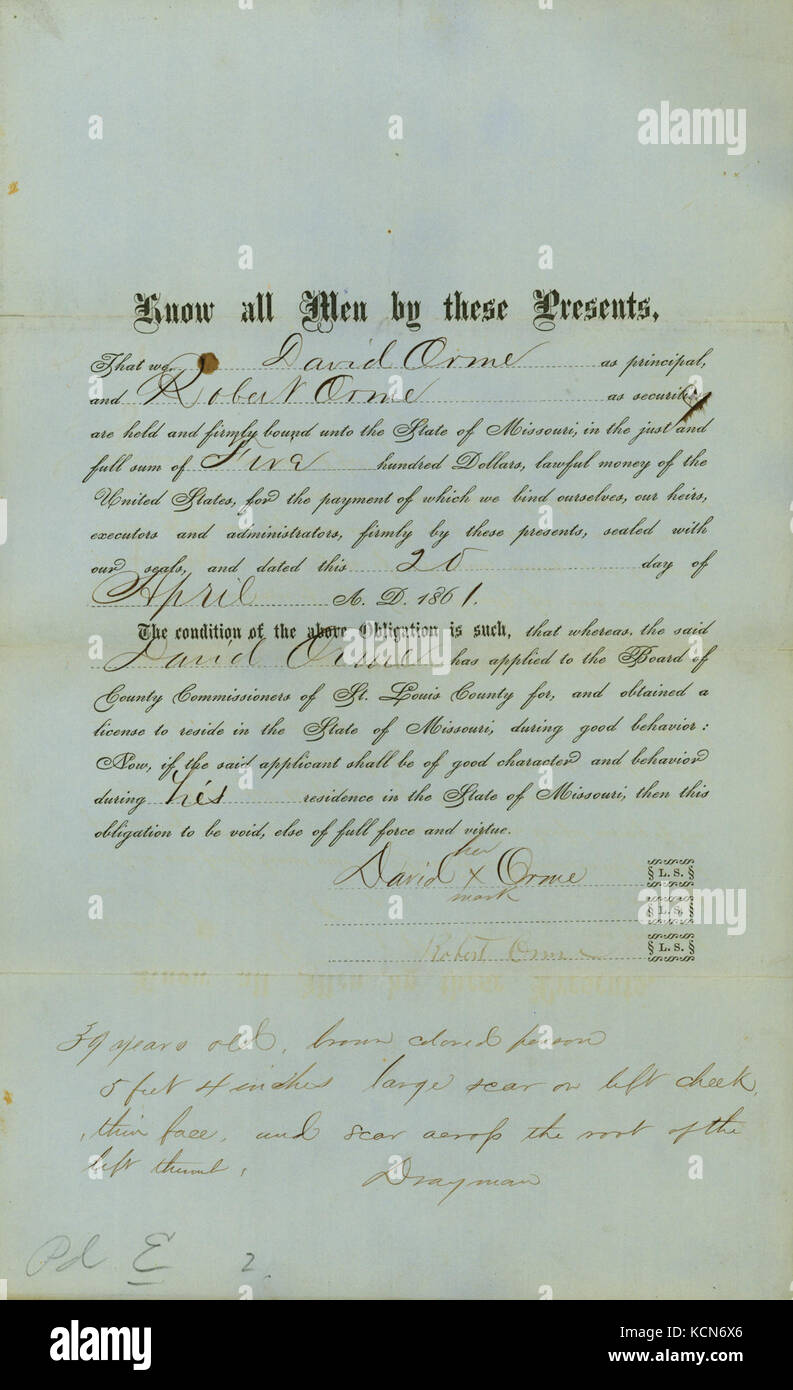 Know all Men by these Presents,
That we, David Orme as principal,
and Robert Orme as security
are held and firmly bound unto the State of Missouri, in the just and
full sum of Five hundred Dollars, lawful money of the
United States, for the payment of which we bind ourselves, our heirs,
executors and administrators, firmly by these presents, sealed with
our seals, and dated this 20 day of
April A. D. 1861.
The condition of the above Obligation is such, that whereas, the said
David Orme has applied to the Board of
County Commissioners of St. Louis County for, and obtained a
license to reside in the State of Missouri, during good behavior:
Now, if the said applicant shall be of good character and behavior
during his residence in the State of Missouri, then this
obligation to be void, else of full force and virtue.
her
David X Orme § L. S. §
mark
§ L. S. §
Robert Orme § L. S. §
39 years old, brown colored person
5 feet 4 inches large scar on left cheek,
thin face, and scar across the root of the
left thumb,
Drayman
Pd E 2
alamy
Image ID: KCN6X6
www.alamy.com